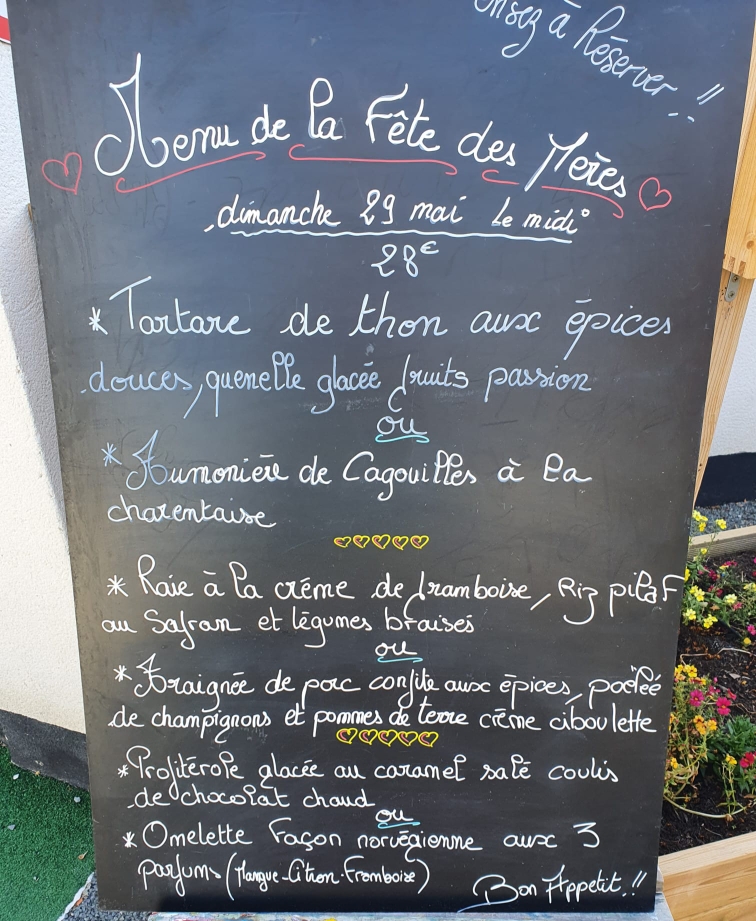 à Réserver !!
Menu de la Fête des Mères
dimanche 29 mai le midi
28€
* Tartare de thon aux épices
douces, quenelle glacée fruits passion
ou
* Aumonière de Cagouilles à la
charentaise
* Raie à la créme de framboise, Riz pilaf
au Safran et légumes braisés
ou
* Araignée de porc confite aux épices, poêlée
de champignons et pommes de terre crème ciboulette
* Profitérole glacée au caramel salé coulis
de chocolat chaud
ou
* Omelette Façon norvégienne aux 3
parfums (Mangue-Citron-Framboise)
Bon Appetit !!